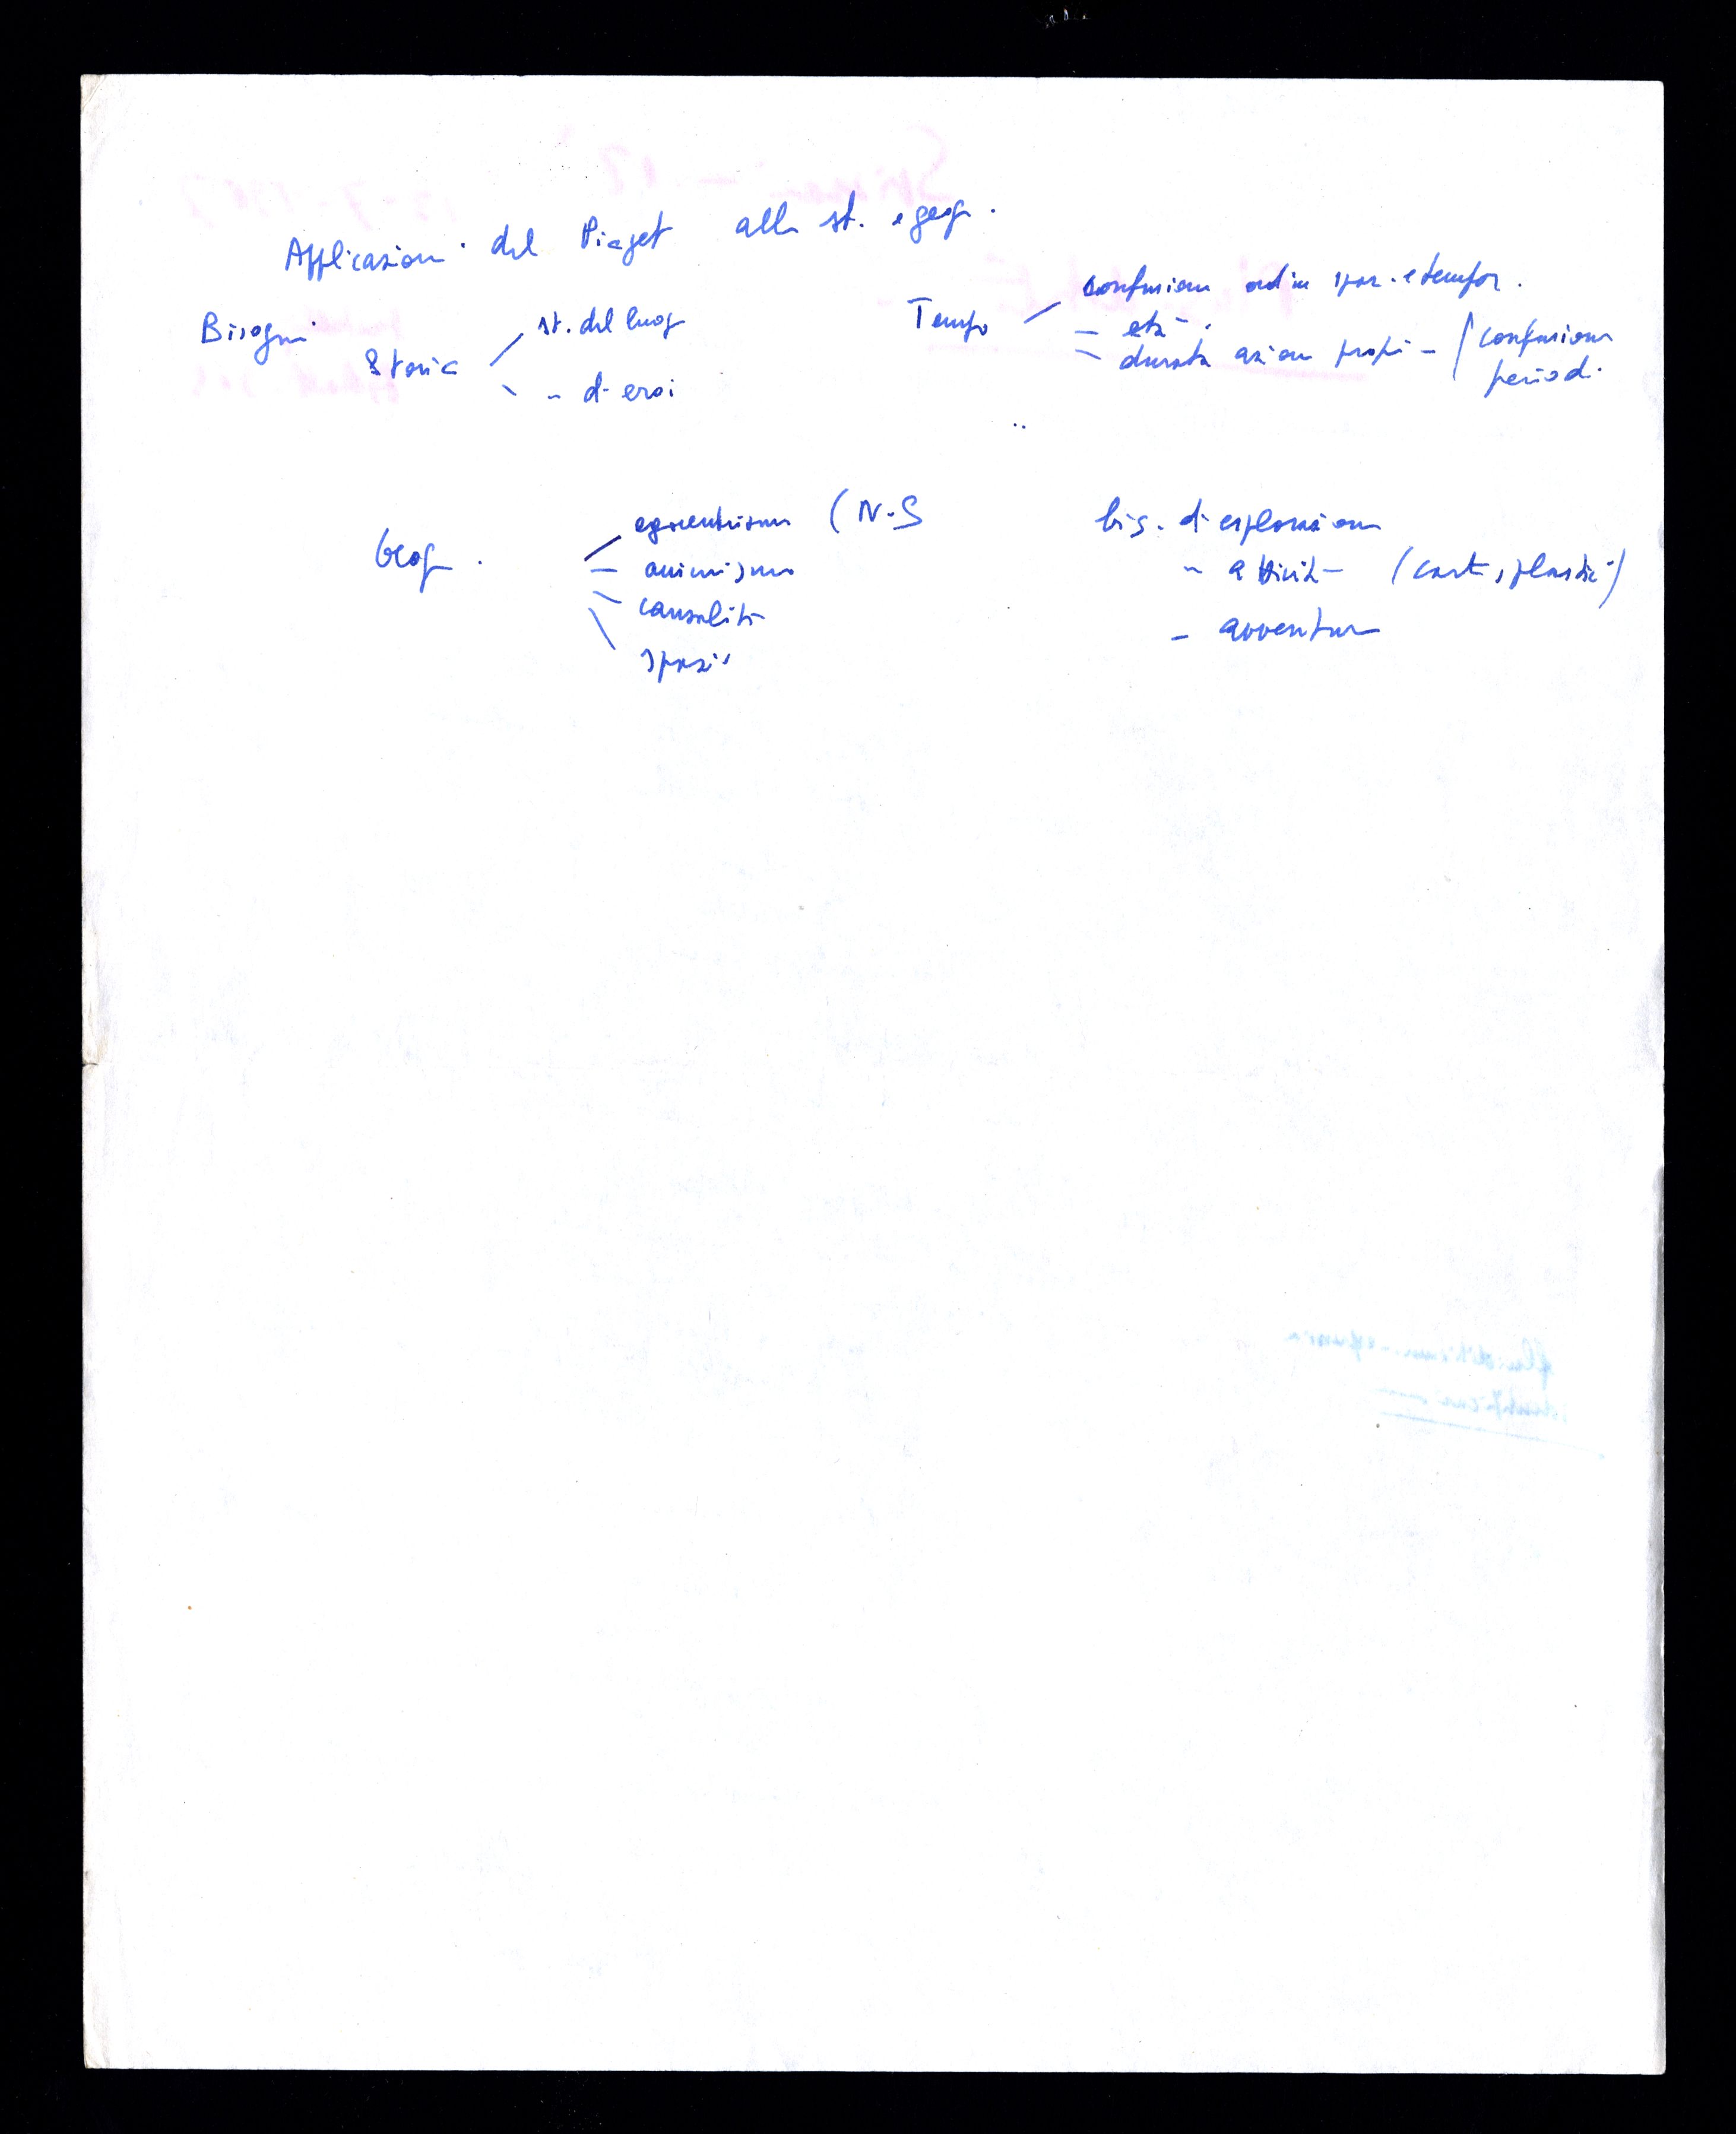 Applicazioni del Piaget alla st. e geogr.
Bisogni
Storia
st. del luogo
" di eroi
Tempo
confusione ordine spaz. e tempor.
— età
durata azioni propri —
(confusione
period.
Geogr.
egocentrismo (N-S
animismo
causalità
spazio
bis. di esplorazione
" attività (carte, plastici)
— avventura